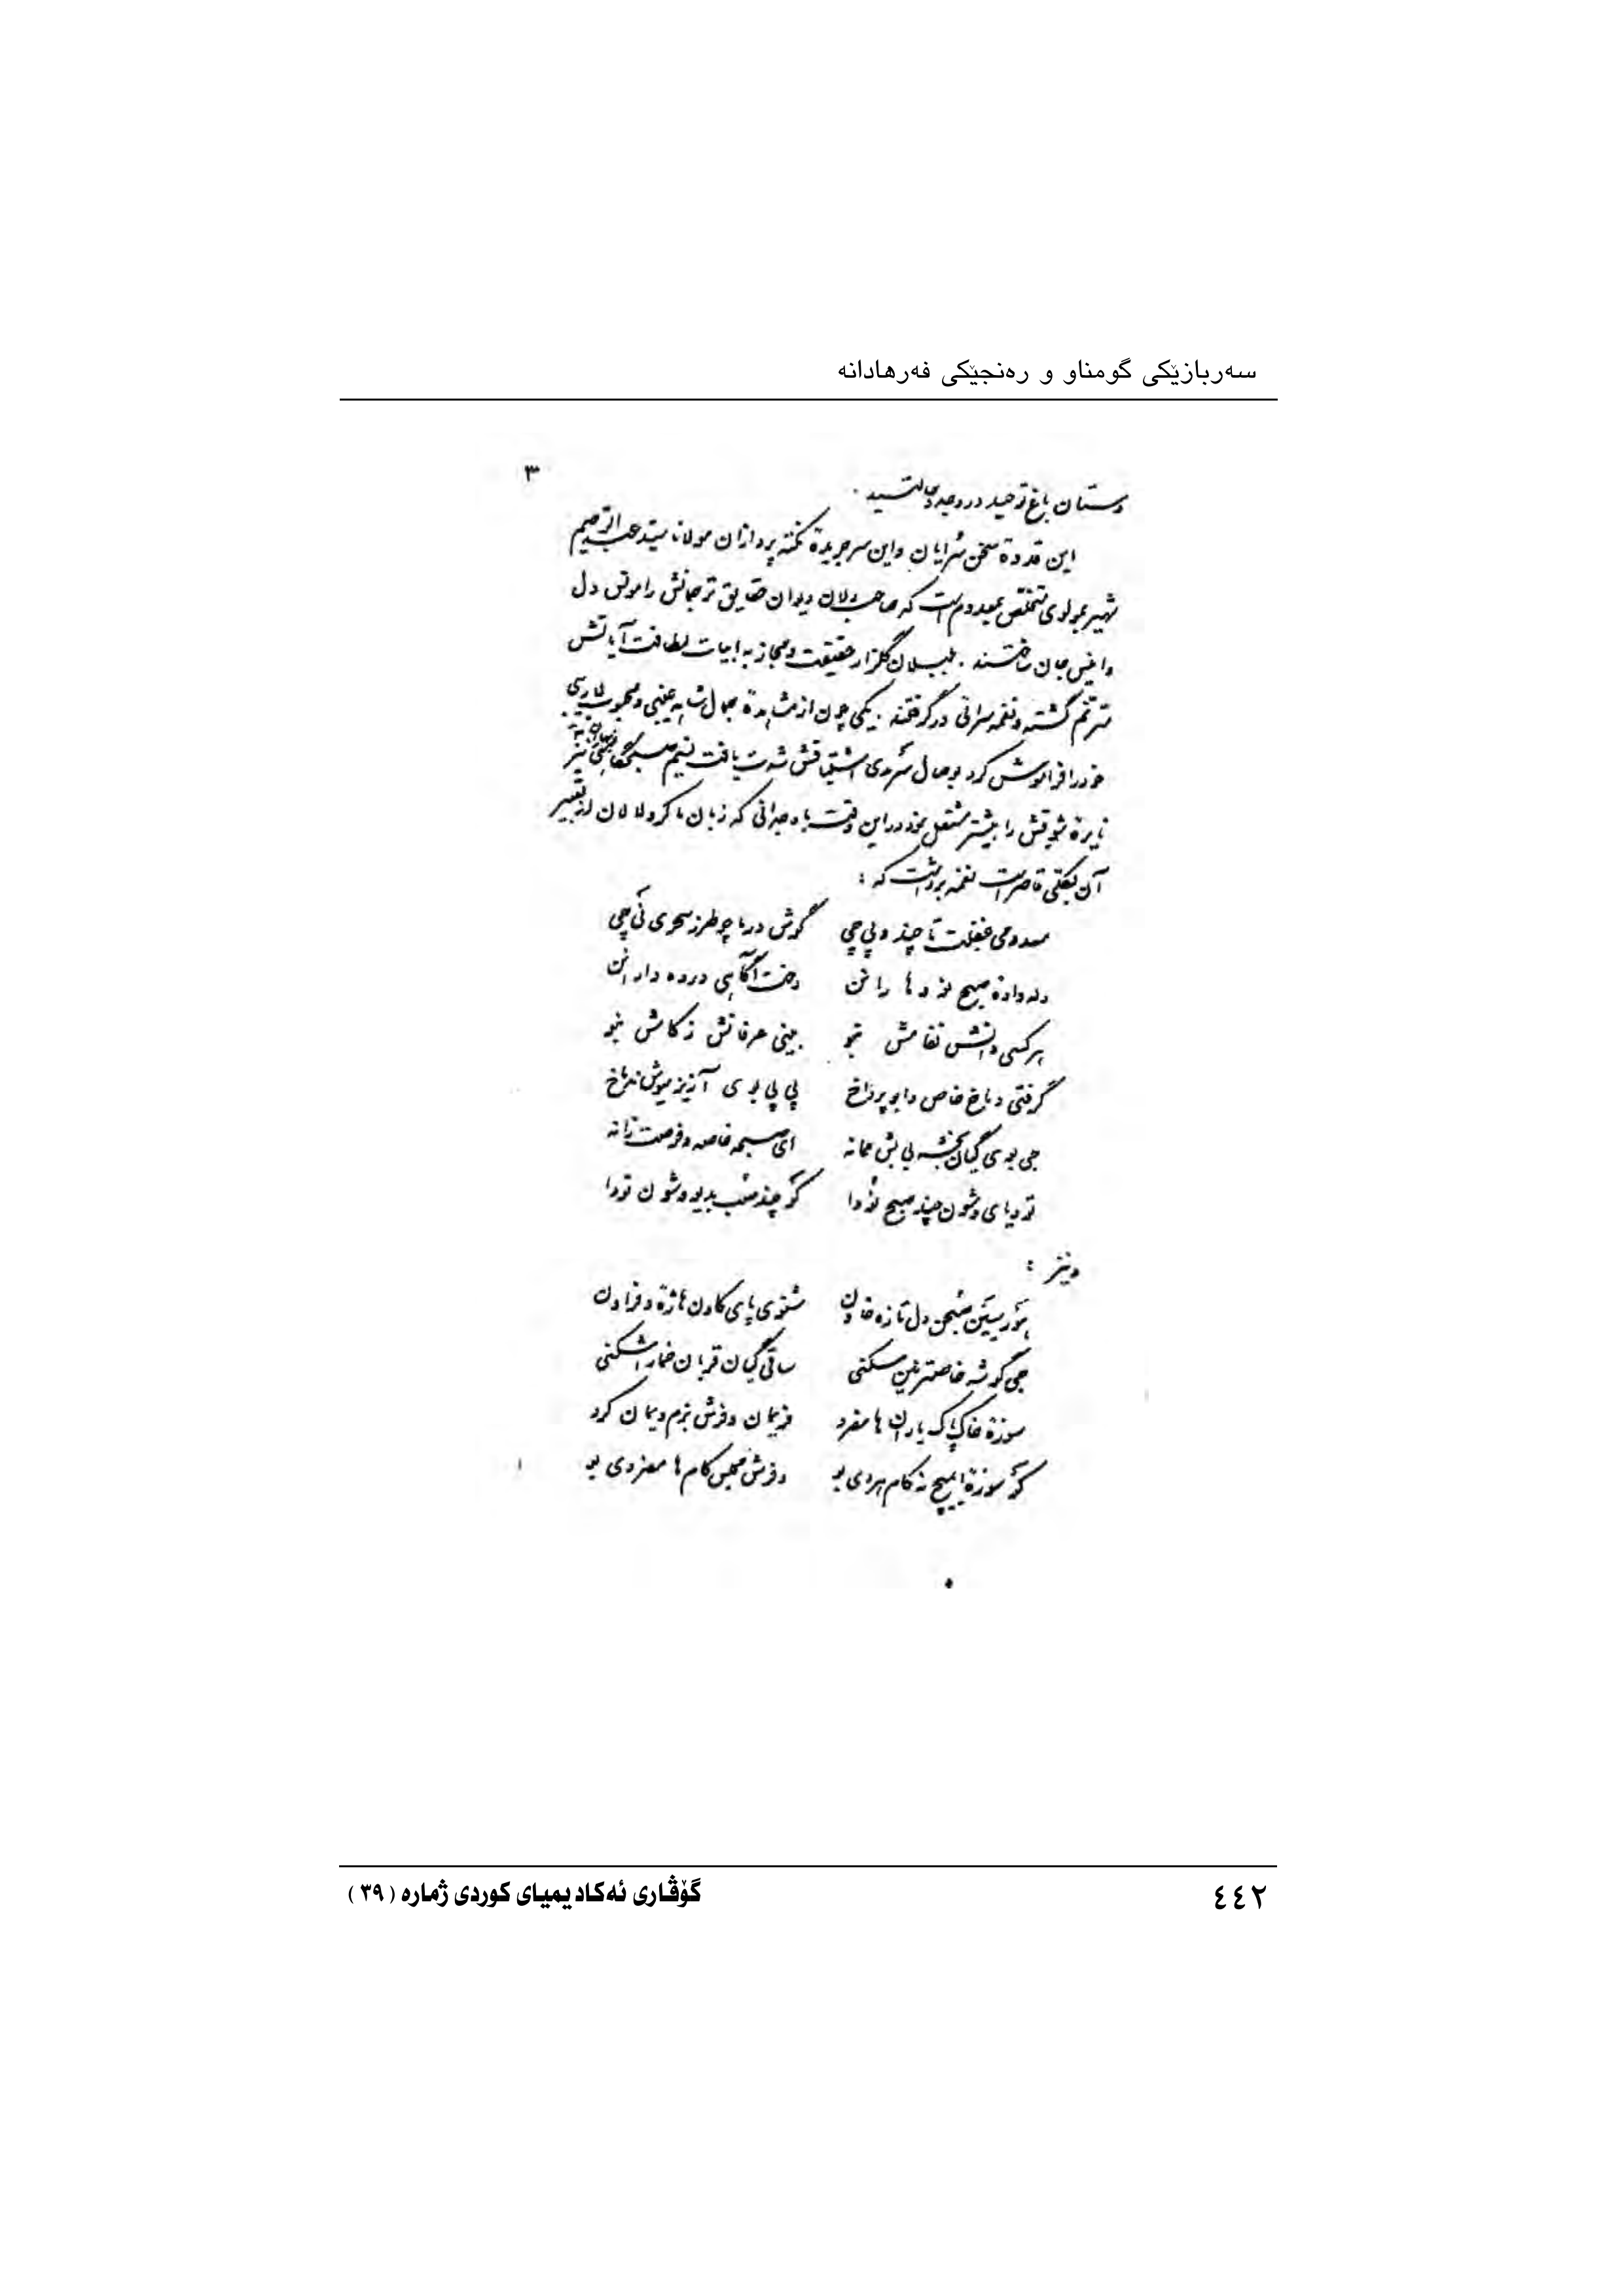 سەربازێکی گومناو و رەنجێکی فەرهادانە
٣
دستان باغ توحید در وجد و
این قدوهٔ سخن سُرایان واین سرجریدهٔ نکته پردازان مولانا سیّد عبدالرّحیم
شهیر بمولوی متخلّص بمعدوم است که صاحبدلان دیوان حقایق ترجمانش را مونس دل
وانیس جان ساختند . بلبلان گلزار حقیقت ومجاز به ابیات لطافت آیاتش
مترنّم گشته ونغمه سرائی درگرفتند . یکی چون از مشاهدهٔ جمال شاهد غیبی ومحبوب
خود را فراموش کرد بوصال سرمدی اشتیاقش شدت یافت نسیم نیز
نایرهٔ شوقش را بیشتر مشتعل نمود در این وقت با وجدانی که زبان ما کر ولالان از تعبیر
آن بکلّی قاصر است نغمه برداشت که :
معدومی غفلت تا چند و پی چی گوش درما چو طرز سحری نَی چی
دله وادهٔ صبح نَو دما را تن وخت آگاهی دروه دارانن
هرکسی دانش نفامش نبو بینی عرفانش زکامش نبو
گرفتی دماغ خاص وا بو پرداخ پی پی بوی آزیز میوش نه دماخ
جی بوی گیان بخشه بی بش ممانه ای صبحه خاصه وفرصت زانه
تو دیای وشون چند صبح نَودا گو چند شب بدیو وشون تودا
ونیز :
هَور سیَن صُبحن دل تازه خاون شنوی پای کاون هاژهٔ وفراون
جی گوشه خاصتر نین مسکنی ساقی گیان قربان خمار اشکنی
سوزهٔ خاک پاک یاران ها مفرد فریمان وفرش بزم ویمان کرد
گو سوزهٔ ایمیچ نه کام هردی بو وفرش مجلس کام ها مفردی بو
٤٤٢
گۆڤاری ئەکادیمیای کوردی ژمارە (٣٩)